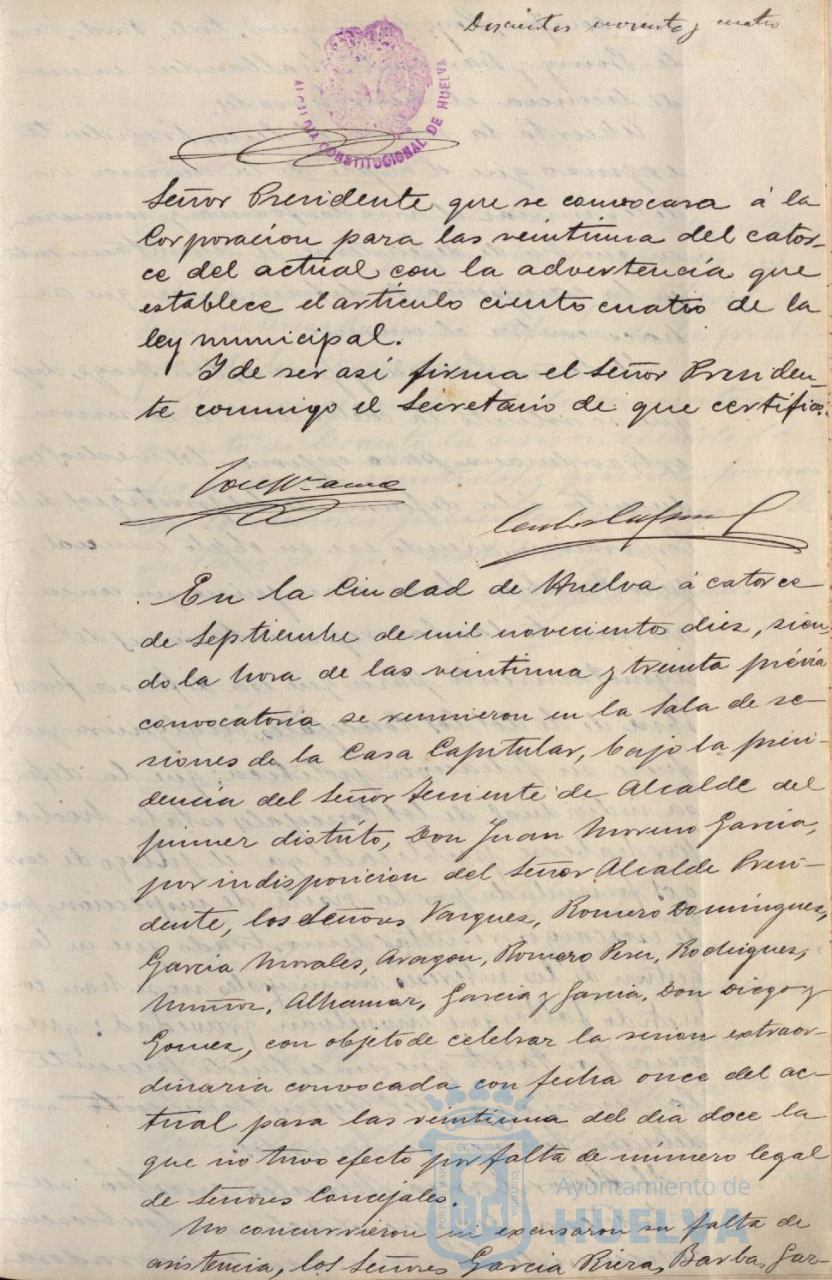 Doscientos noventa y cuatro
ALCALDIA CONSTITUCIONAL DE HUELVA
Señor Presidente que se convocara á la
Corporacion para las veintiuna del cator-
ce del actual con la advertencia que
establece el artículo ciento cuatro de la
ley municipal.
Y de ser así firma el Señor Presiden-
te conmigo el Secretario de que certifico.
En la Ciudad de Huelva á catorce
de Septiembre de mil novecientos diez, sien-
do la hora de las veintiuna y treinta prévia
convocatoria se reunieron en la Sala de se-
siones de la Casa Capitular, bajo la presi-
dencia del Señor Teniente de Alcalde del
primer distrito, Don Juan Moreno Garcia,
por indisposicion del Señor Alcalde Presi-
dente, los Señores Vazquez, Romero Dominguez,
Garcia Morales, Aragon, Romero Perez, Rodriguez,
Muñoz, Alhamar, Garcia y Garcia, Don Diego y
Gomez, con objeto de celebrar la sesion extraor-
dinaria convocada con fecha once del ac-
tual para las veintiuna del dia doce la
que no tuvo efecto por falta de número legal
de Señores Concejales.
No concurrieron ni excusaron su falta de
asistencia, los Señores Garcia Riera, Barba, Gar-
Ayuntamiento de
HUELVA